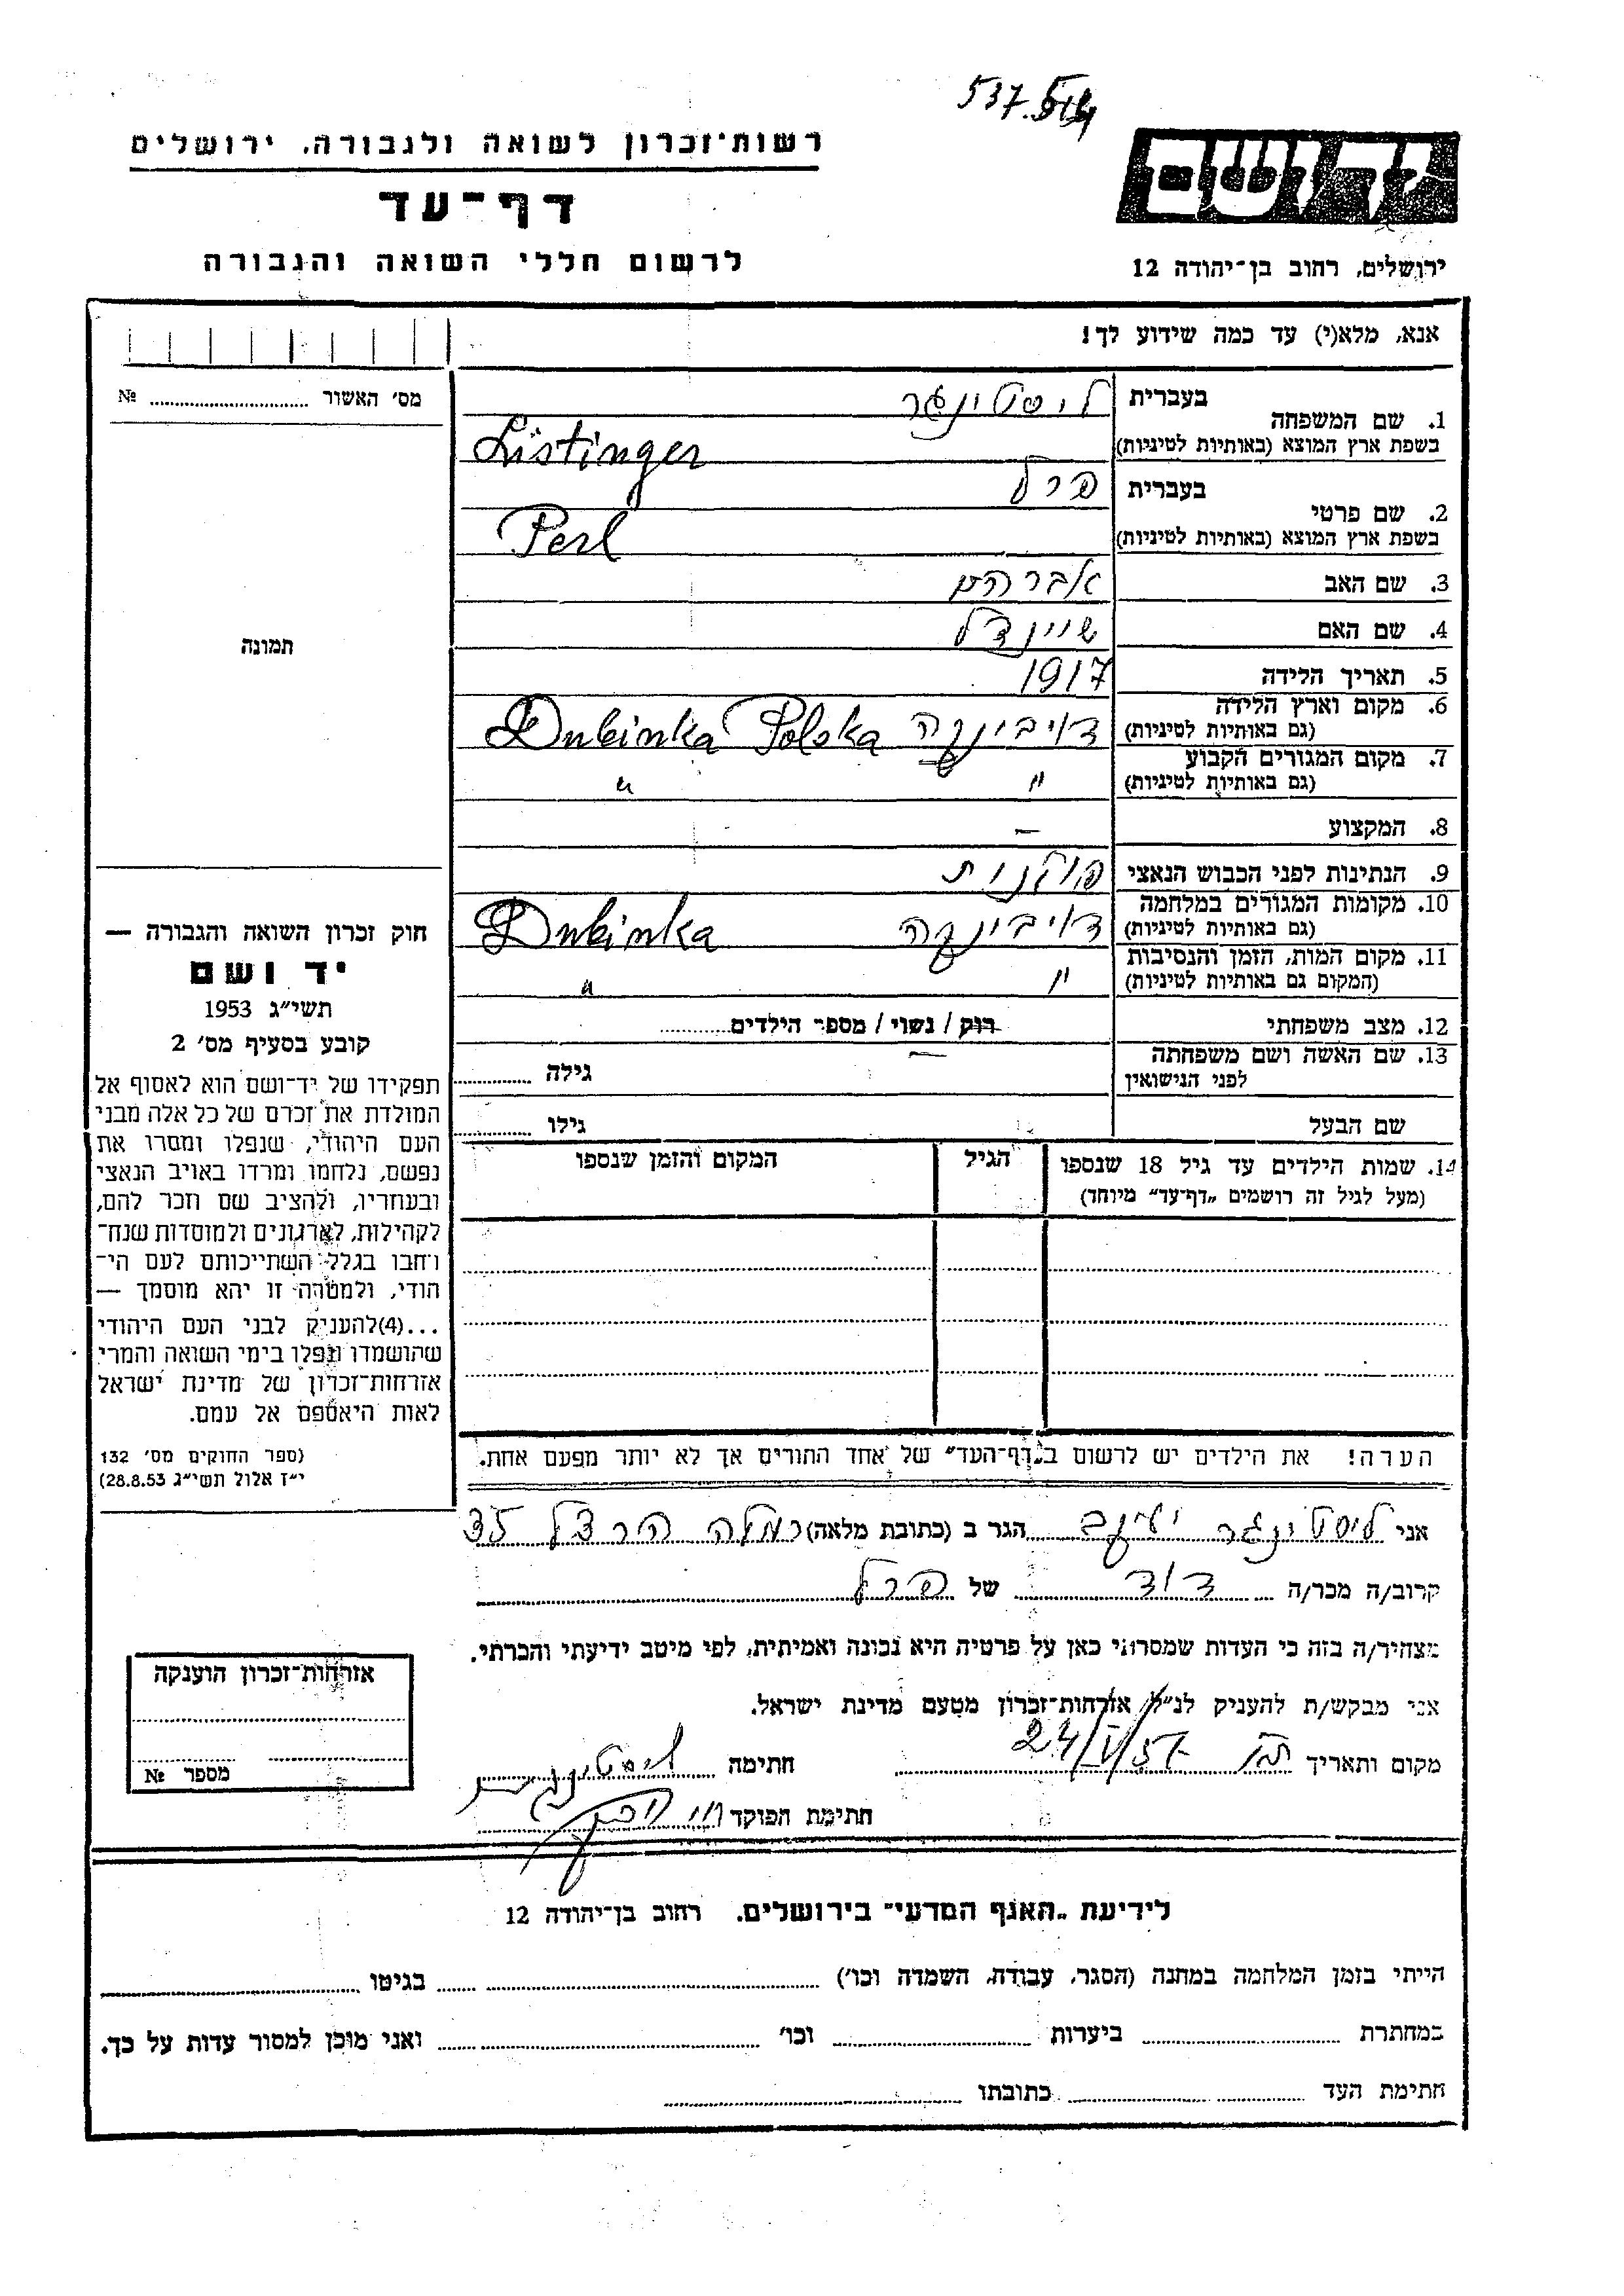 537.
רשות־זכרון לשואה ולגבורה, ירושלים
דף־עד
לרשום חללי השואה והגבורה
יד ושם
ירושלים, רחוב בן־יהודה 12
אנא, מלא(י) עד כמה שידוע לך!
בעברית ליסטינגר
1. שם המשפחה
בשפת ארץ המוצא (באותיות לטיניות) Listinger
בעברית פרל
2. שם פרטי
בשפת ארץ המוצא (באותיות לטיניות) Perl
3. שם האב אברהם
4. שם האם שיינדל
5. תאריך הלידה 1917
6. מקום וארץ הלידה דויבינקה Dubinka Polska
(גם באותיות לטיניות)
7. מקום המגורים הקבוע
(גם באותיות לטיניות) " "
8. המקצוע –
9. הנתינות לפני הכבוש הנאצי פולנית
10. מקומות המגורים במלחמה דויבינקה Dubinka
(גם באותיות לטיניות)
11. מקום המות, הזמן והנסיבות
(המקום גם באותיות לטיניות) " "
12. מצב משפחתי רוק / נשוי / מספר הילדים
13. שם האשה ושם משפחתה – גילה
לפני הנישואין
שם הבעל גילו
14. שמות הילדים עד גיל 18 שנספו הגיל המקום והזמן שנספו
(מעל לגיל זה רושמים „דף־עד” מיוחד)
הערה! את הילדים יש לרשום ב„דף־העד” של אחד ההורים אך לא יותר מפעם אחת.
מס׳ האשור №
תמונה
חוק זכרון השואה והגבורה —
יד ושם
תשי״ג 1953
קובע בסעיף מס׳ 2
תפקידו של יד־ושם הוא לאסוף אל
המולדת את זכרם של כל אלה מבני
העם היהודי, שנפלו ומסרו את
נפשם, נלחמו ומרדו באויב הנאצי
ובעוזריו, ולהציב שם וזכר להם,
לקהילות, לארגונים ולמוסדות שנח־
רחבו בגלל השתייכותם לעם הי־
הודי, ולמטרה זו יהא מוסמך —
...(4)להעניק לבני העם היהודי
שהושמדו ונפלו בימי השואה והמרי
אזרחות־זכרון של מדינת ישראל
לאות היאספם אל עמם.
(ספר החוקים מס׳ 132
י״ז אלול תשי״ג 28.8.53)
אני ליסטינגר יעקב הגר ב (כתובת מלאה) רמלה הרצל 35
קרוב/ה מכר/ה דוד של פרל
מצהיר/ה בזה כי העדות שמסרתי כאן על פרטיה היא נכונה ואמיתית, לפי מיטב ידיעתי והכרתי.
אני מבקש/ת להעניק לנ״ל אזרחות־זכרון מטעם מדינת ישראל.
מקום ותאריך 24/V/57 חתימה ליסטינגר
חתימת הפוקד
אזרחות־זכרון הוענקה
מספר №
לידיעת „האגף המדעי” בירושלים. רחוב בן־יהודה 12
הייתי בזמן המלחמה במחנה (הסגר, עבודה, השמדה וכו׳) בגיטו
במחתרת ביערות וכו׳ ואני מוכן למסור עדות על כך.
חתימת העד כתובתו